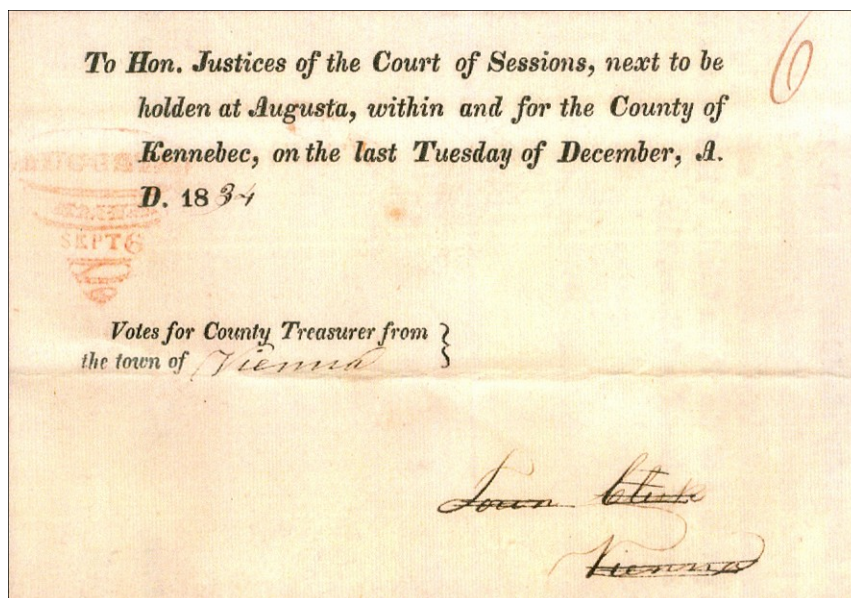 6
To Hon. Justices of the Court of Sessions, next to be
holden at Augusta, within and for the County of
Kennebec, on the last Tuesday of December, A.
D. 1834
AUGUSTA
SEPT 6
Votes for County Treasurer from
the town of Vienna
Town Clerk
Vienna